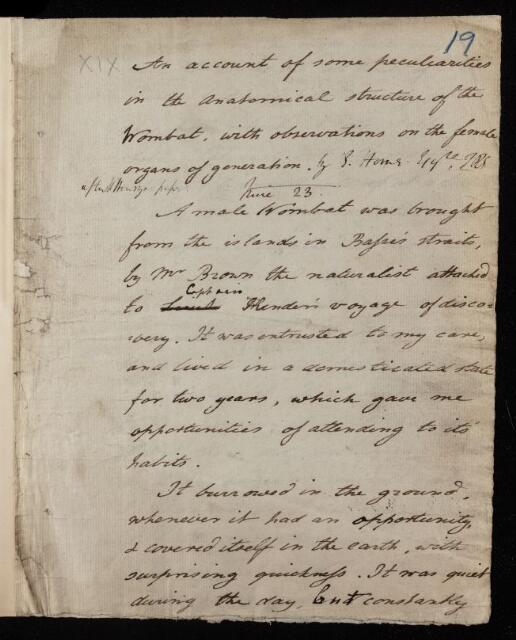 19
XIX
An account of some peculiarities
in the anatomical structure of the
Wombat, with observations on the female
organs of generation. by E. Home Esqre FRS
after Dr Henrys paper
June 23.
A male Wombat was brought
from the islands in Basses straits,
by Mr Brown the naturalist attached
Captain
to Lieut Flinders's voyage of disco-
very. It was entrusted to my care,
and lived in a domesticated state
for two years, which gave me
opportunities of attending to its
habits.
It burrowed in the ground,
whenever it had an opportunity,
& covered itself in the earth, with
surprising quickness. It was quiet
during the day, but constantly